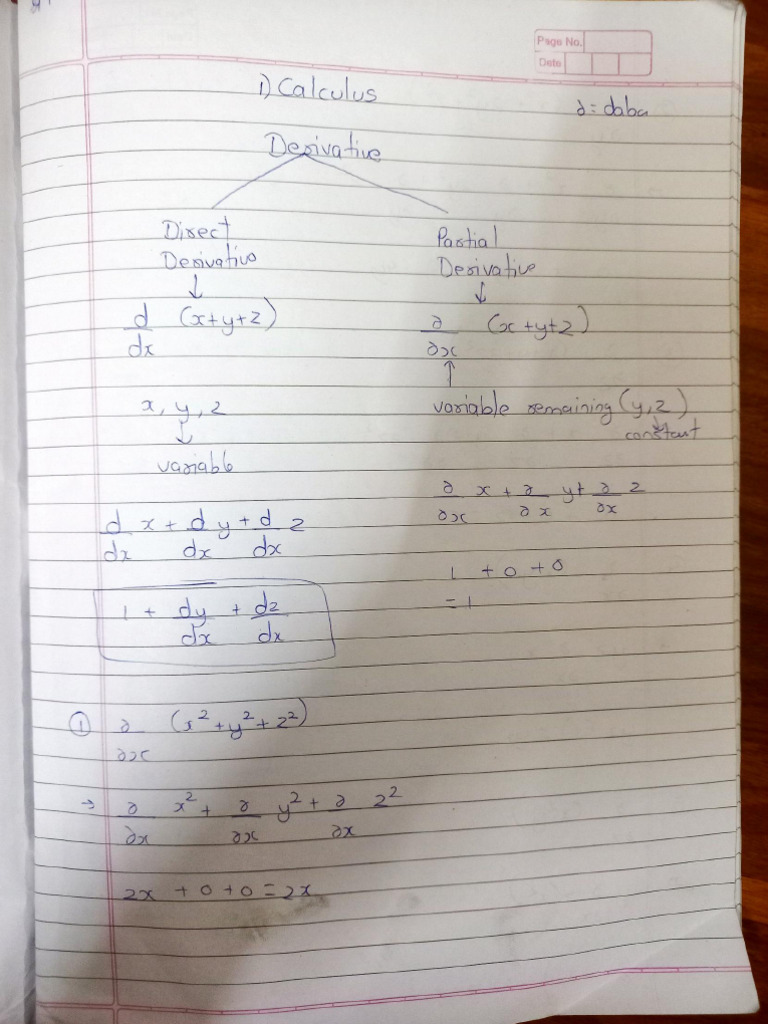 Page No.
Date
1) Calculus
∂ = daba
Derivative
Direct
Derivative
↓
d/dx (x+y+z)
x, y, z
↓
variable
d/dx x + d/dx y + d/dx z
1 + dy/dx + dz/dx
Partial
Derivative
↓
∂/∂x (x+y+z)
↑
variable remaining (y,z)
↓
constant
∂/∂x x + ∂/∂x y + ∂/∂x z
1 + 0 + 0
= 1
① ∂/∂x (x²+y²+z²)
→ ∂/∂x x² + ∂/∂x y² + ∂/∂x z²
2x + 0 + 0 = 2x